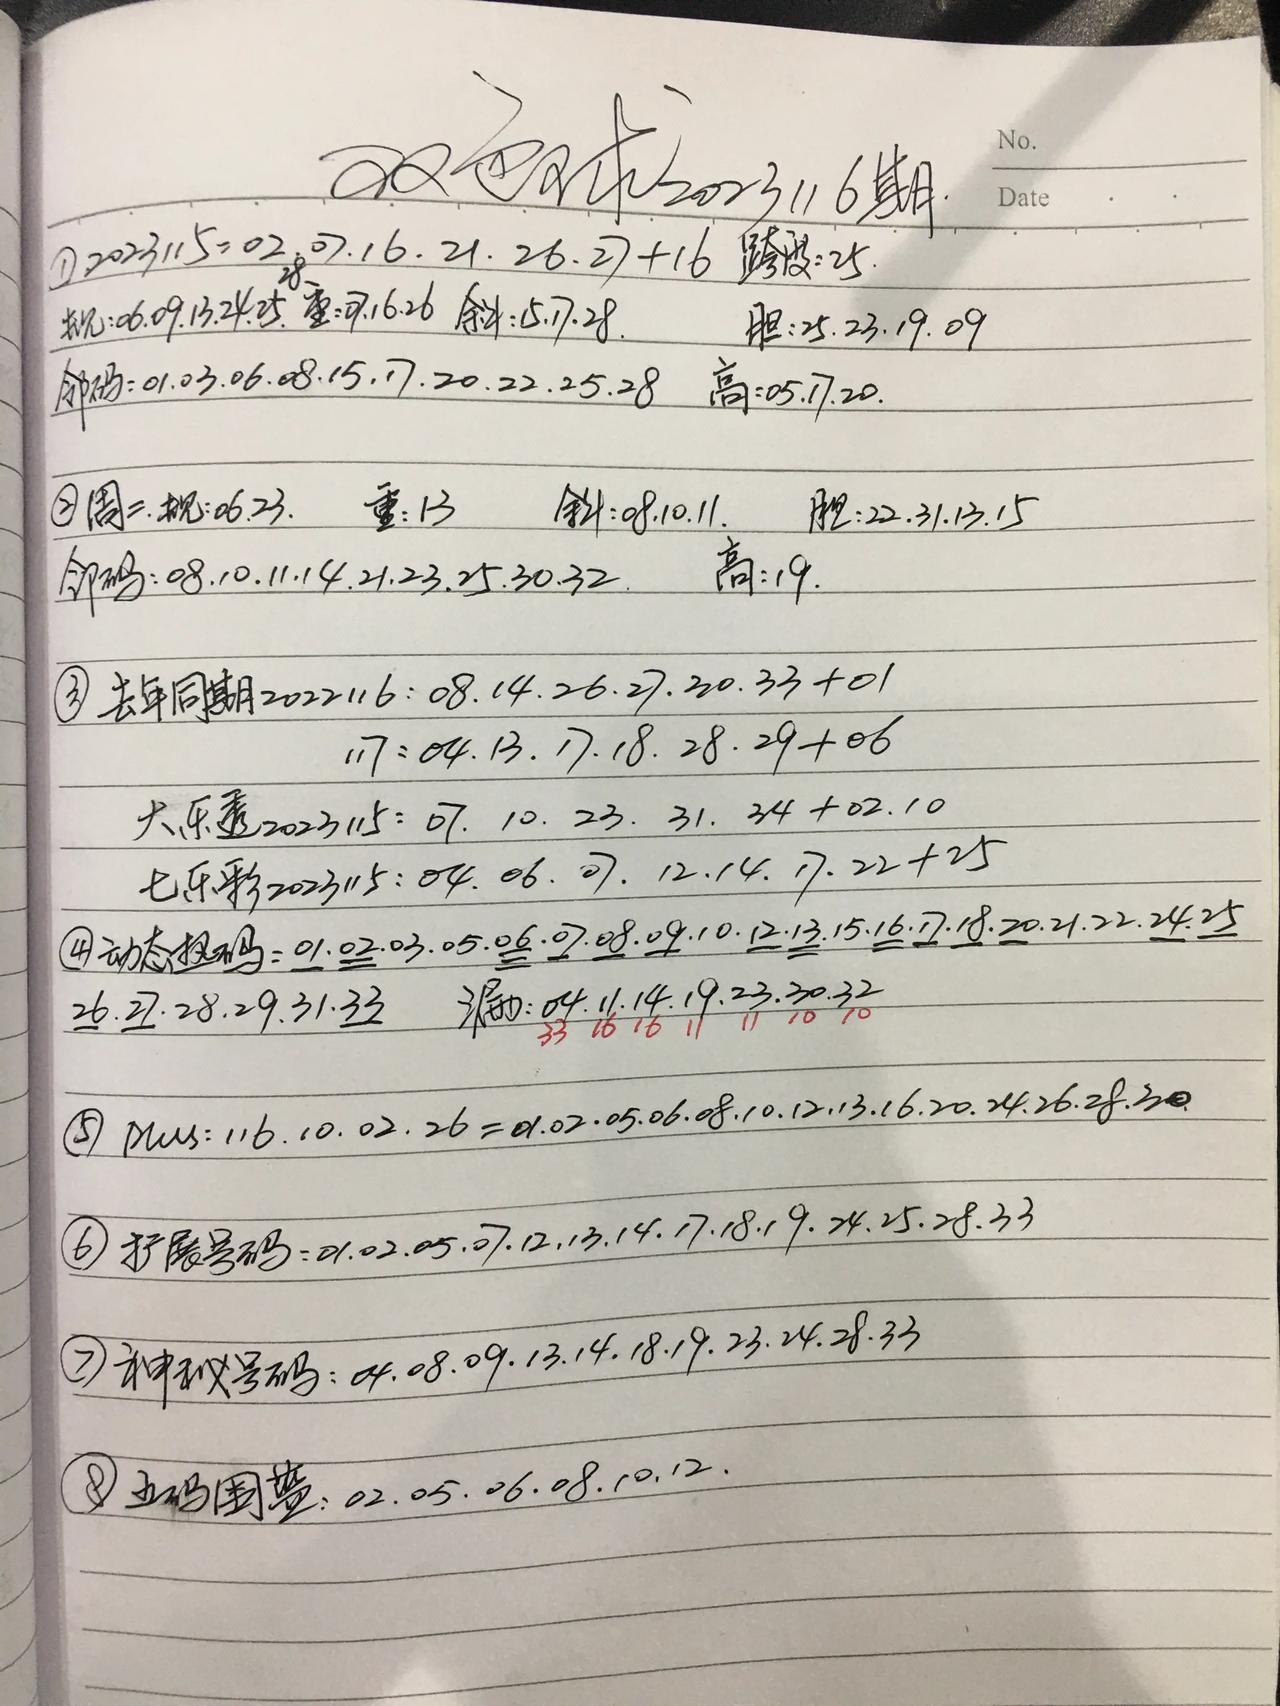 双色球2023116期.
No.
Date
①2023115=02.07.16.21.26.27+16 跨度:25.
枧:06.09.13.24.25.28 重:07.16.26 斜:15.17.28. 胆:25.23.19.09
邻码:01.03.06.08.15.17.20.22.25.28 高:05.17.20.
②周二.枧:06.23. 重:13 斜:08.10.11. 胆:22.31.13.15
邻码:08.10.11.14.21.23.25.30.32. 高:19.
③去年同期2022116:08.14.26.27.30.33+01
117:04.13.17.18.28.29+06
大乐透2023115:07.10.23.31.34+02.10
七乐彩2023115:04.06.07.12.14.17.22+25
④动态热码=01.02.03.05.06.07.08.09.10.12.13.15.16.17.18.20.21.22.24.25
26.27.28.29.31.33 漏:04.11.14.19.23.30.32
33 16 16 11 11 10 10
⑤plus:116.10.02.26=01.02.05.06.08.10.12.13.16.20.24.26.28.30
⑥扩展号码=01.02.05.07.12.13.14.17.18.19.24.25.28.33
⑦神秘号码:04.08.09.13.14.18.19.23.24.28.33
⑧五码围蓝:02.05.06.08.10.12.